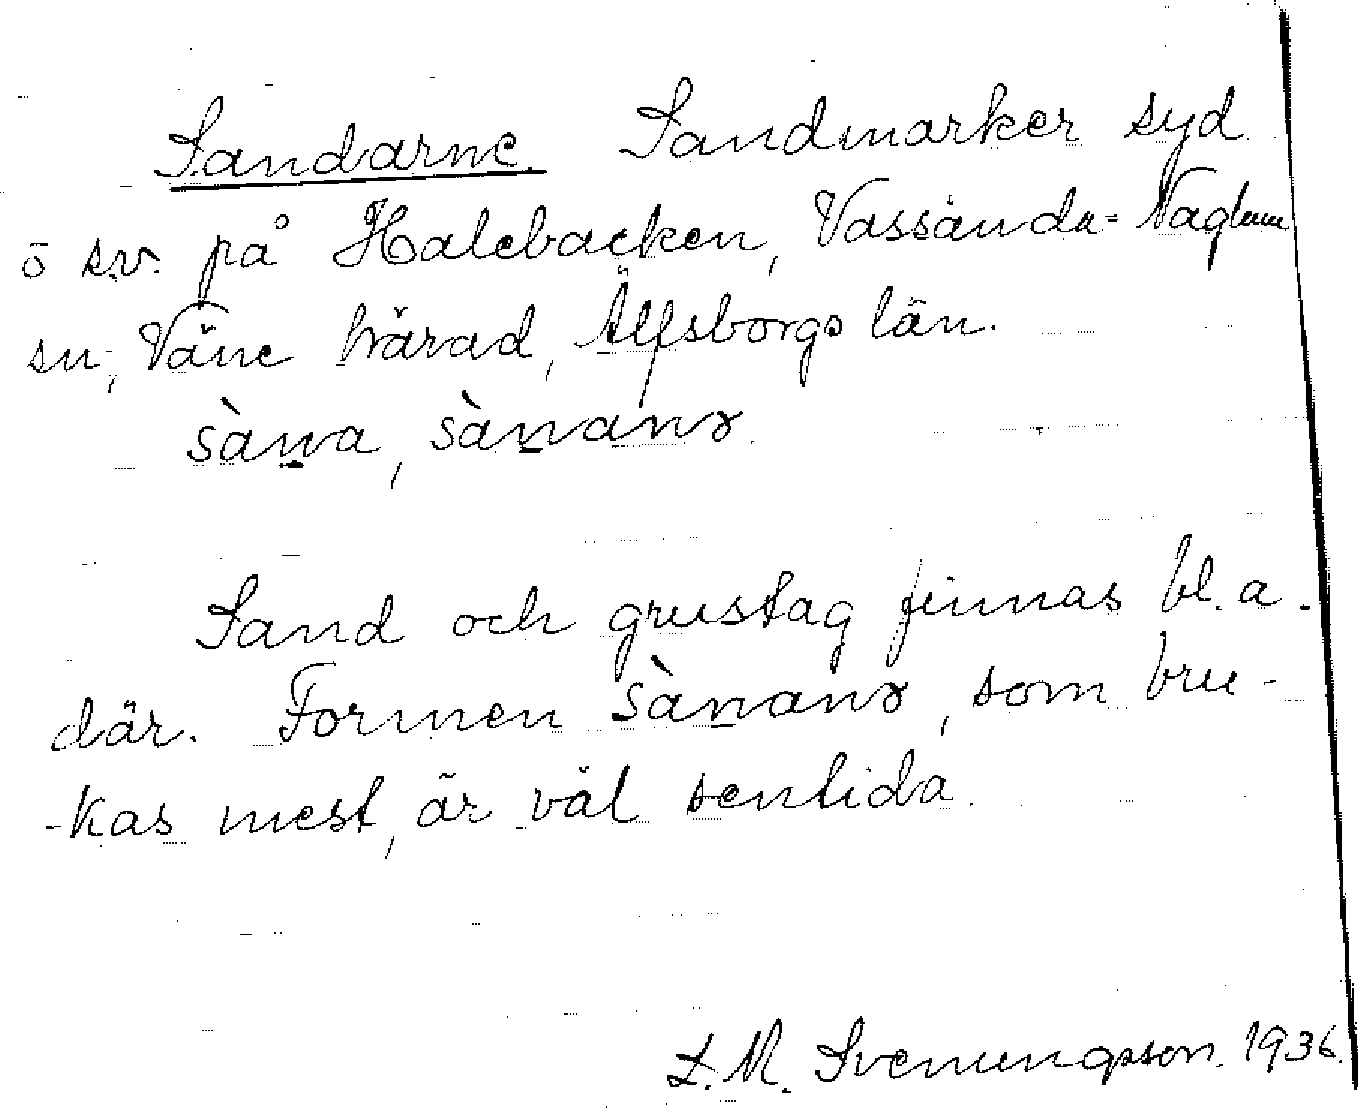 Sandarne. Sandmarker syd
o sv. på Halebacken, Vassända-Naglum
sn, Väne härad, Älfsborgs län.
sàna, sànanɤ.
Sand och grustag finnas bl. a.
där. Formen sànanɤ, som bru-
-kas mest, är väl sentida.
L. M. Svenungsson. 1936.